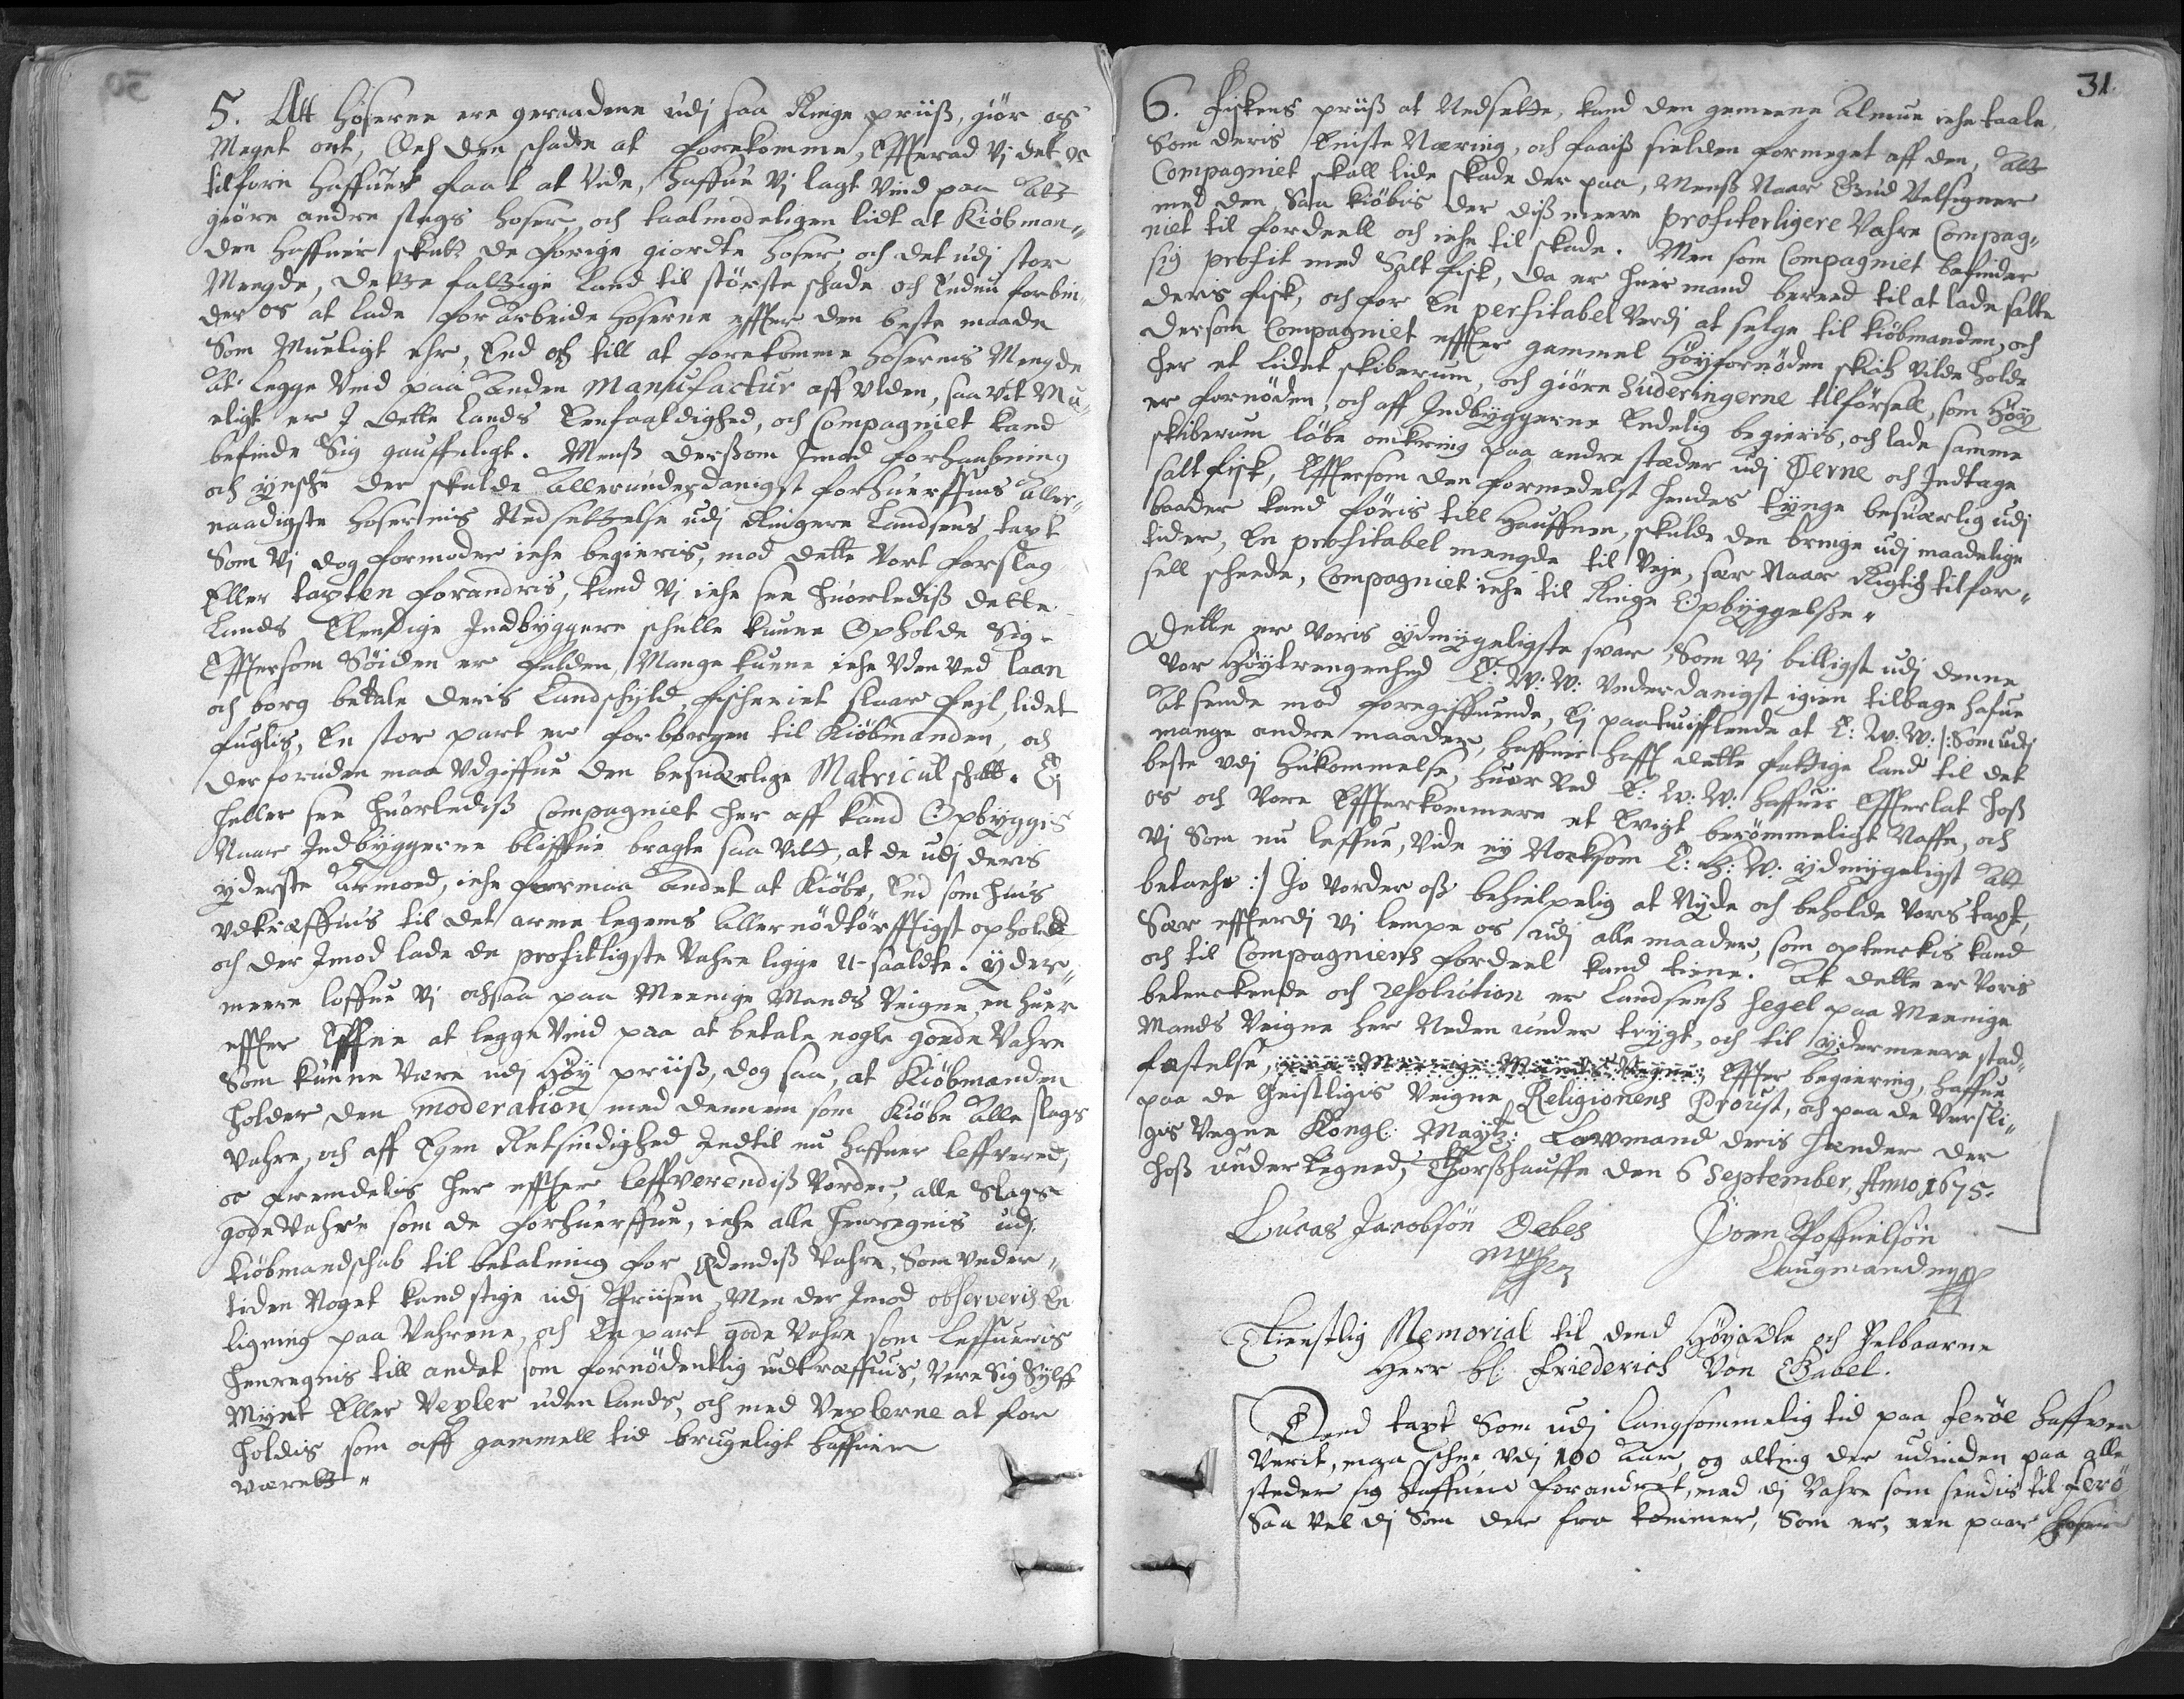 5. Att Hoserne ere geraadene udj saa Ringe priiß, giör os
Meget ont, Och den schade at forekomme, Effterad Vj det os
tilforn haffuer faaet at Vide, haffue Vj lagt Vind paa Att
giöre andre slags hoser, och taalmodeligen lidt at Kiöbman-
den haffuer skutt de forige giordte hoser, och det udj stor
Mengde, dette fattige Land til störste schade och Endnu forbin-
der os at lade forarbeide Hoserne effter den beste maade
Som Mueligt ehr, End och till at forekomme hosernes Mengde
At legge Vind paa Anden Manufactur aff Ulden, saa vit Mu-
eligt er J dette Lands Eenfaaldighed, och Compagniet kand
befinde Sig gauffnligt. Menß derßom Jmod forhaabning
och ynsche der skulde Allerunderdanigst forhuerffuis Aller-
naadigste hosernis Nedsettelse udj Ringere Landsens taxt
Som Vj dog formoder iche begieris, mod dette Vort forslag
Eller taxten forandris, kand Vj iche see huorlediß dette
Lands Elendige Indbyggere schulle kunne Opholde Sig.
Efftersom Söiden er falden, Mange kunne iche Uden ved laan
och borg betale deris Landschyld, fischeriet slaar feyl, lidet
fuglis, En stor part er forborgen til Kiöbmanden, och
der foruden maa Udgiffue den besuærlige Matricul schatt. Ej
heller see huorlediß Compagniet her aff kand Opbyggis
Naar Indbyggerne bliffue bragte saa vitt, at de udj deris
yderste Armoed, iche formaa Andet at Kiöbe, End som huis
Udkræffuis til det arme legems Allernödtörfftigst ophold
och der Jmod lade de profitligste Vahre ligge U-saaldte. Yder-
meere loffue Vj ochsaa paa Meenige Mands Veigne en huer
effter Effne at legge Vind paa at betale nogle goede Vahre
Som kunne Være udj Höy priiß, dog saa, at Kiöbmanden
holder den moderation med dennem som Kiöbe Alle slags
Vahre, och aff Egen Retsindighed Indtil nu haffuer leffvered,
oc fremdelis her effter leffverendiß Vorder, alle Slags
gode Vahre som de forhuerffue, iche alle henregnis udj
kiöbmandschab til betalning for Ædendiß Vahre, Som Under-
tiden Noget kand stige udj Priisen, Men der Jmod observeris En
ligning paa Vahrene, och En part gode Vahre som leffueris
henregnis till andet som fornödentlig udkræffuis, Vere Sig Sylff
Mynt Eller Vexler uden lands, och med Vexlerne at for
holdis som aff gammell tid brugeligt haffuer
været"
31.
6. Fiskens priiß at Nedsette, kand den gemeene Almue iche taale,
Som deris Eeniste Næring, och faaiß sielden formeget aff den, Att
Compagniet skall lide skade der paa, Menß Naar Gud Velsigner
med den, Saa kiöbis der diß meere profiterligere Vahre Compag-
niet til fordeell och iche til skade. Men som Compagniet befinder
sig profit med Salt fisk, da er huer mand bereed til at lade salte
deris fisk, och for En perfitabel Verdj at selge til kiöbmanden, och
dersom Compagniet effter gammel Höyfornöden skick vilde holde
her et lidet skiberum, och giöre Suderingerne tilförsell, som Höy
er fornöden, och aff Indbyggerne Endelig begieris, och lade samme
skiberum löbe omkring paa andre stæder udj Öerne och Indtage
salt fisk, Efftersom den formedelst hendes tynge besuærlig udj
baader kand föris till Hauffnen, skulde den bringe udj maadelige
tider, En profitabel mengde til Veje, sær Naar Rigtig tilfor-
sell scheede, Compagniet iche til Ringe Opbyggelße"
Dette er Voris ydmygeligste svar, Som Vj billigst udj denne
Vor Höytrengenhed E: W: W: Underdanigst igien tilbage hafue
At sende mod foregiffuende, Ej paatuifflende at E: W: W: /: Som udj
mange andre maader, haffuer hafft dette fattige Land til det
beste udj hukommelse, huor Ved E: W: W: haffuer Effterlat hoß
os och Vore Effterkommere et Evigt berömmeligt Naffn, och
Vj Som nu leffue, Vide ey Noksom E: H: W: ydmygeligst Att
betache :/ Jo Vorder oß behielpelig at Nyde och beholde Voris taxt,
Sær effterdj Vj lempe os udj alle maader, som optenckis kand
och til Compagniens fordeel kand tiene. At dette er Voris
betenckende och resolution er Landsenß Segel paa Meenige
Mands Veigne her Neden under trygt, och til ydermeere stad-
fæstelse, paa Meenige Mands Vegne, Effter begiering, haffue
paa de Geistliges Veigne Religionens Proust, och paa de Versli-
ges Vegne Kongl: Maytz: Lawmand deris Hænder der
hoß undertegned, Thorßhauffn den 6 September, Anno 1675.
Lucas Jacobsön Debes
mpp
Joen Poffuelsön
Laugmand mpp
Tienstlig Memorial til dend Höyædle och Velbaarne
Herr hl: Friederich Von Gabel.
Dend taxt Som udj langsommelig tid paa Feröe haffver
Verit, maa schee Udj 100 Aar, og alting der udinden paa alle
steder sig haffuer forandret, med dj Vahre som sendis til Ferö
Saa vel dj Som der fra kommer, Som er, een paar Hoser